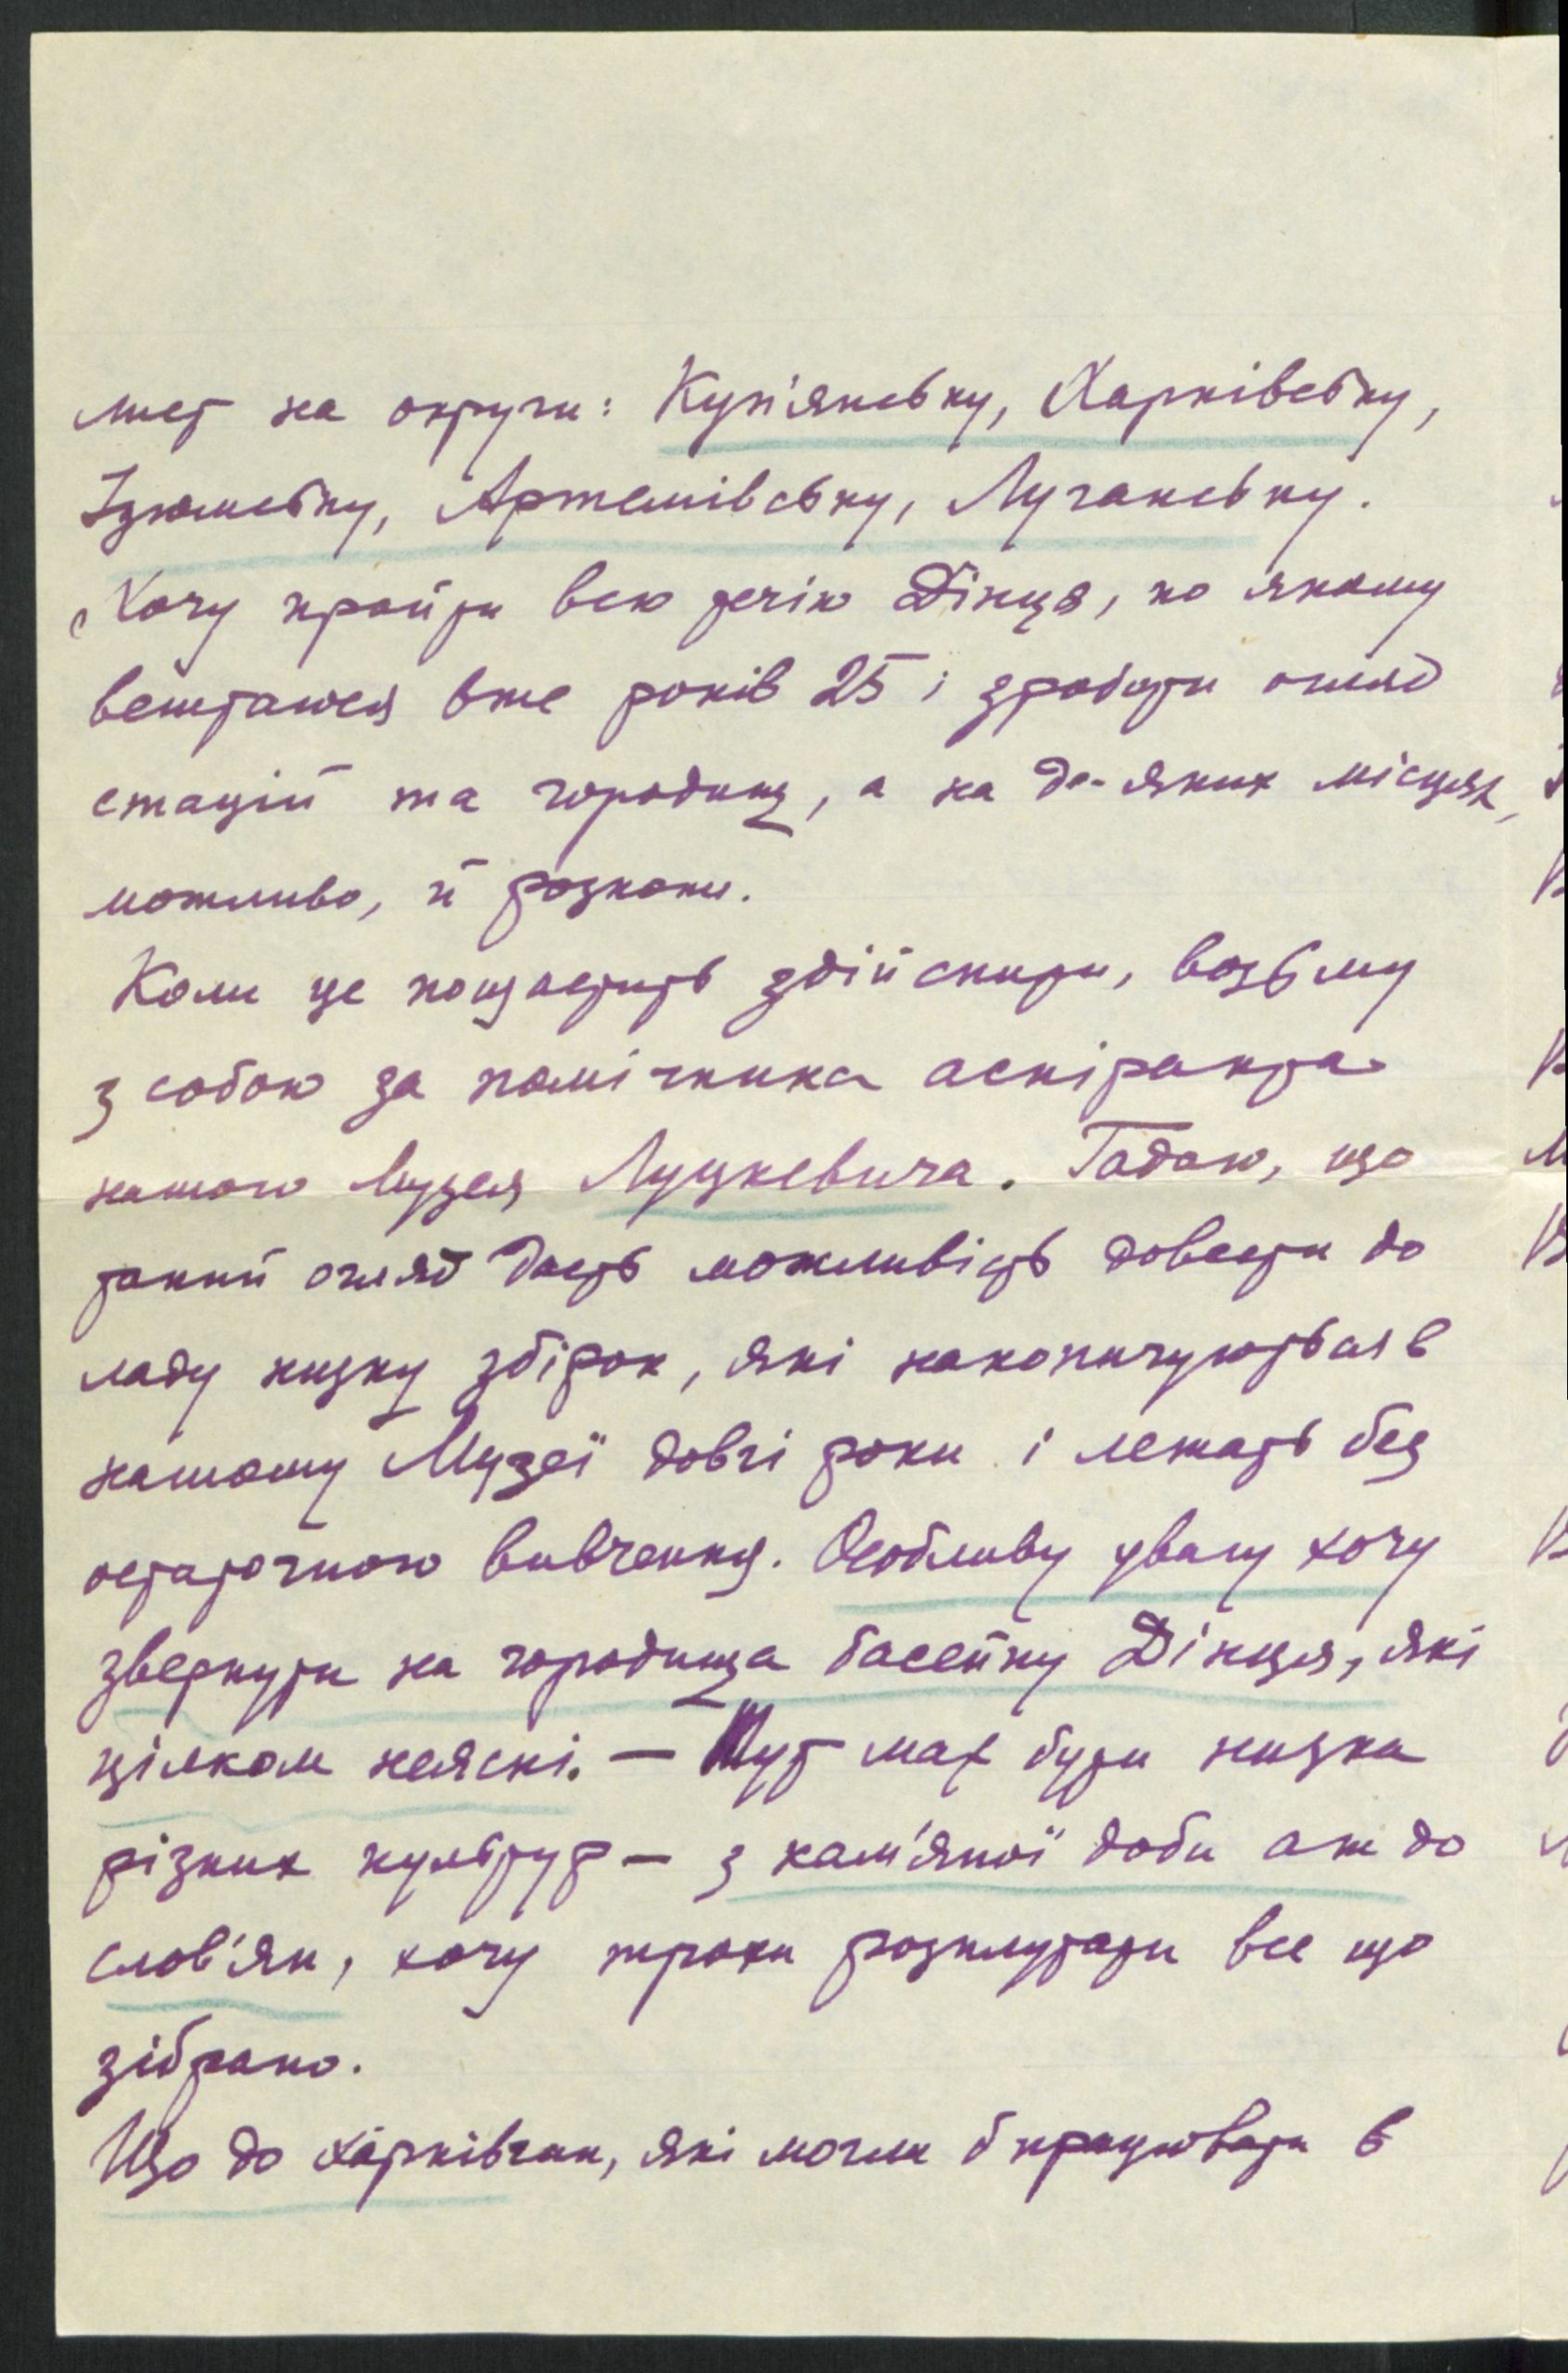 лист на округи: Куп'янську, Харківську,
Ізюмську, Артемівську, Луганську.
Хочу пройти всю течію Дінця, по якому
вештаюся вже років 25 і зробити огляд
стацій та городищ, а на де-яких місцях,
можливо, й розкопи.
Коли це пощастить здійснити, возьму
з собою за помічника аспіранта
нашого Музея Луцкевича. Гадаю, що
такий огляд дасть можливість довести до
ладу низку збірок, які накопичуються в
нашому Музеї довгі роки і лежать без
остаточного вивчення. Особливу увагу хочу
звернути на городища басейну Дінця, які
цілком неясні. — Тут має бути низка
різних культур — з кам'яної доби аж до
слов'ян, хочу трохи розплутати все що
зібрано.
Що до харківчан, які могли б працювати в